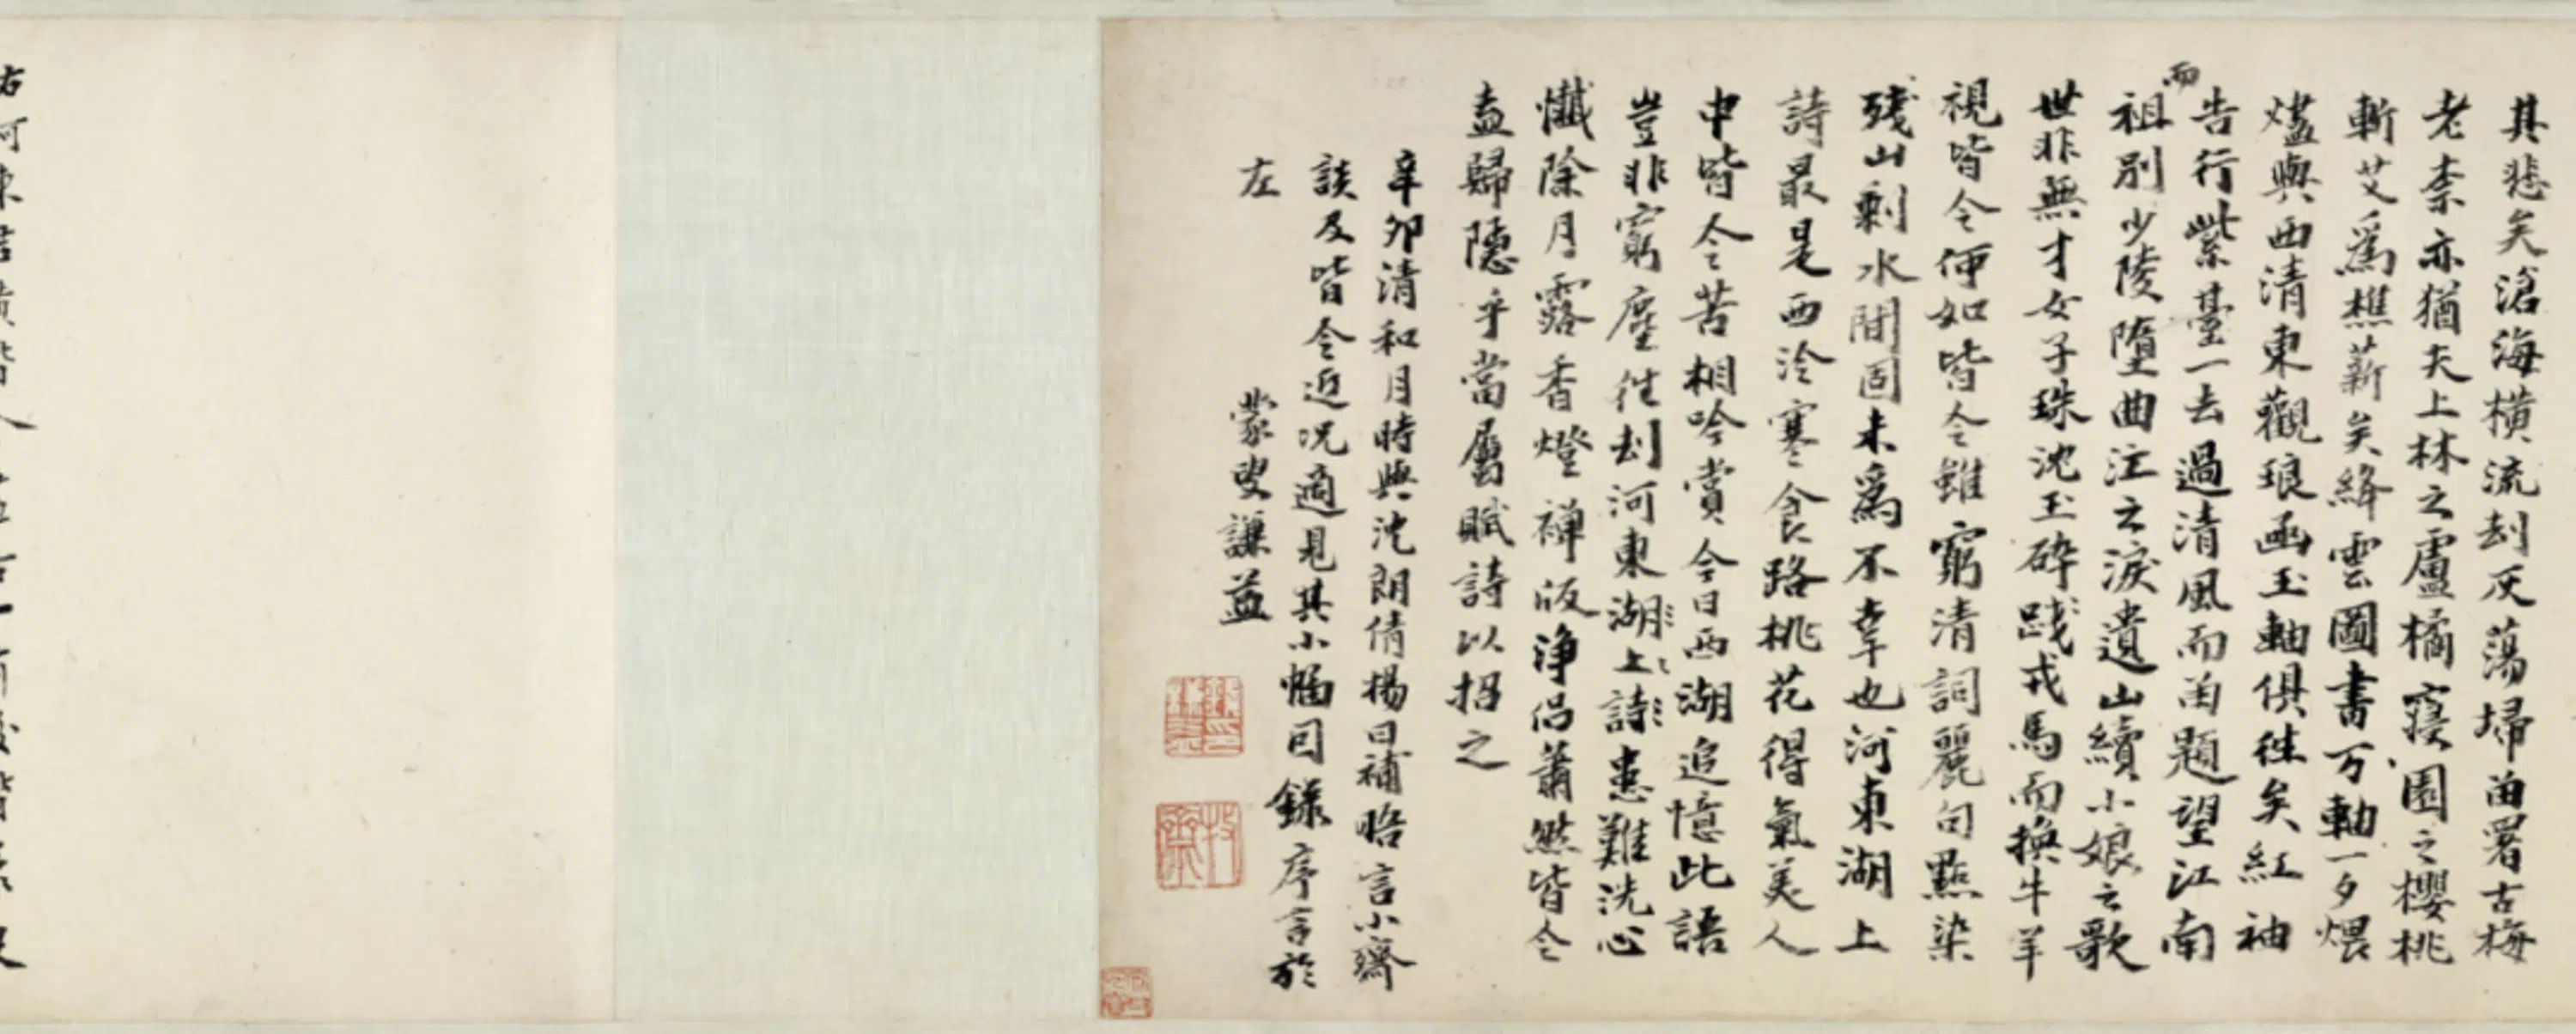 其悲矣滄海橫流劫灰蕩埽留署古梅
老柰亦猶夫上林之盧橘寢園之櫻桃
斬艾爲樵薪矣絳雲圖書万軸一夕煨
燼與西清東觀琅函玉軸俱往矣紅袖
告行紫臺一去過清風而留題望江南
而
祖別少陵墮曲江之淚遺山續小娘之歌
世非無才女子珠沈玉碎踐戎馬而換牛羊
視皆令何如皆令雖窮清詞麗句點染
殘山剩水間固未爲不幸也河東湖上
詩最是西泠寒食路桃花得氣美人
中皆令苦相吟賞今日西湖追憶此語
豈非窮塵往劫河東湖上詩患難洗心
懺除月露香燈禪版淨侣蕭然皆令
盍歸隱乎當屬賦詩以招之
辛卯清和月時與沈朗倩揚曰補晤言小齋
談及皆令近况適見其小幅因錄序言於
左
蒙叟謙益